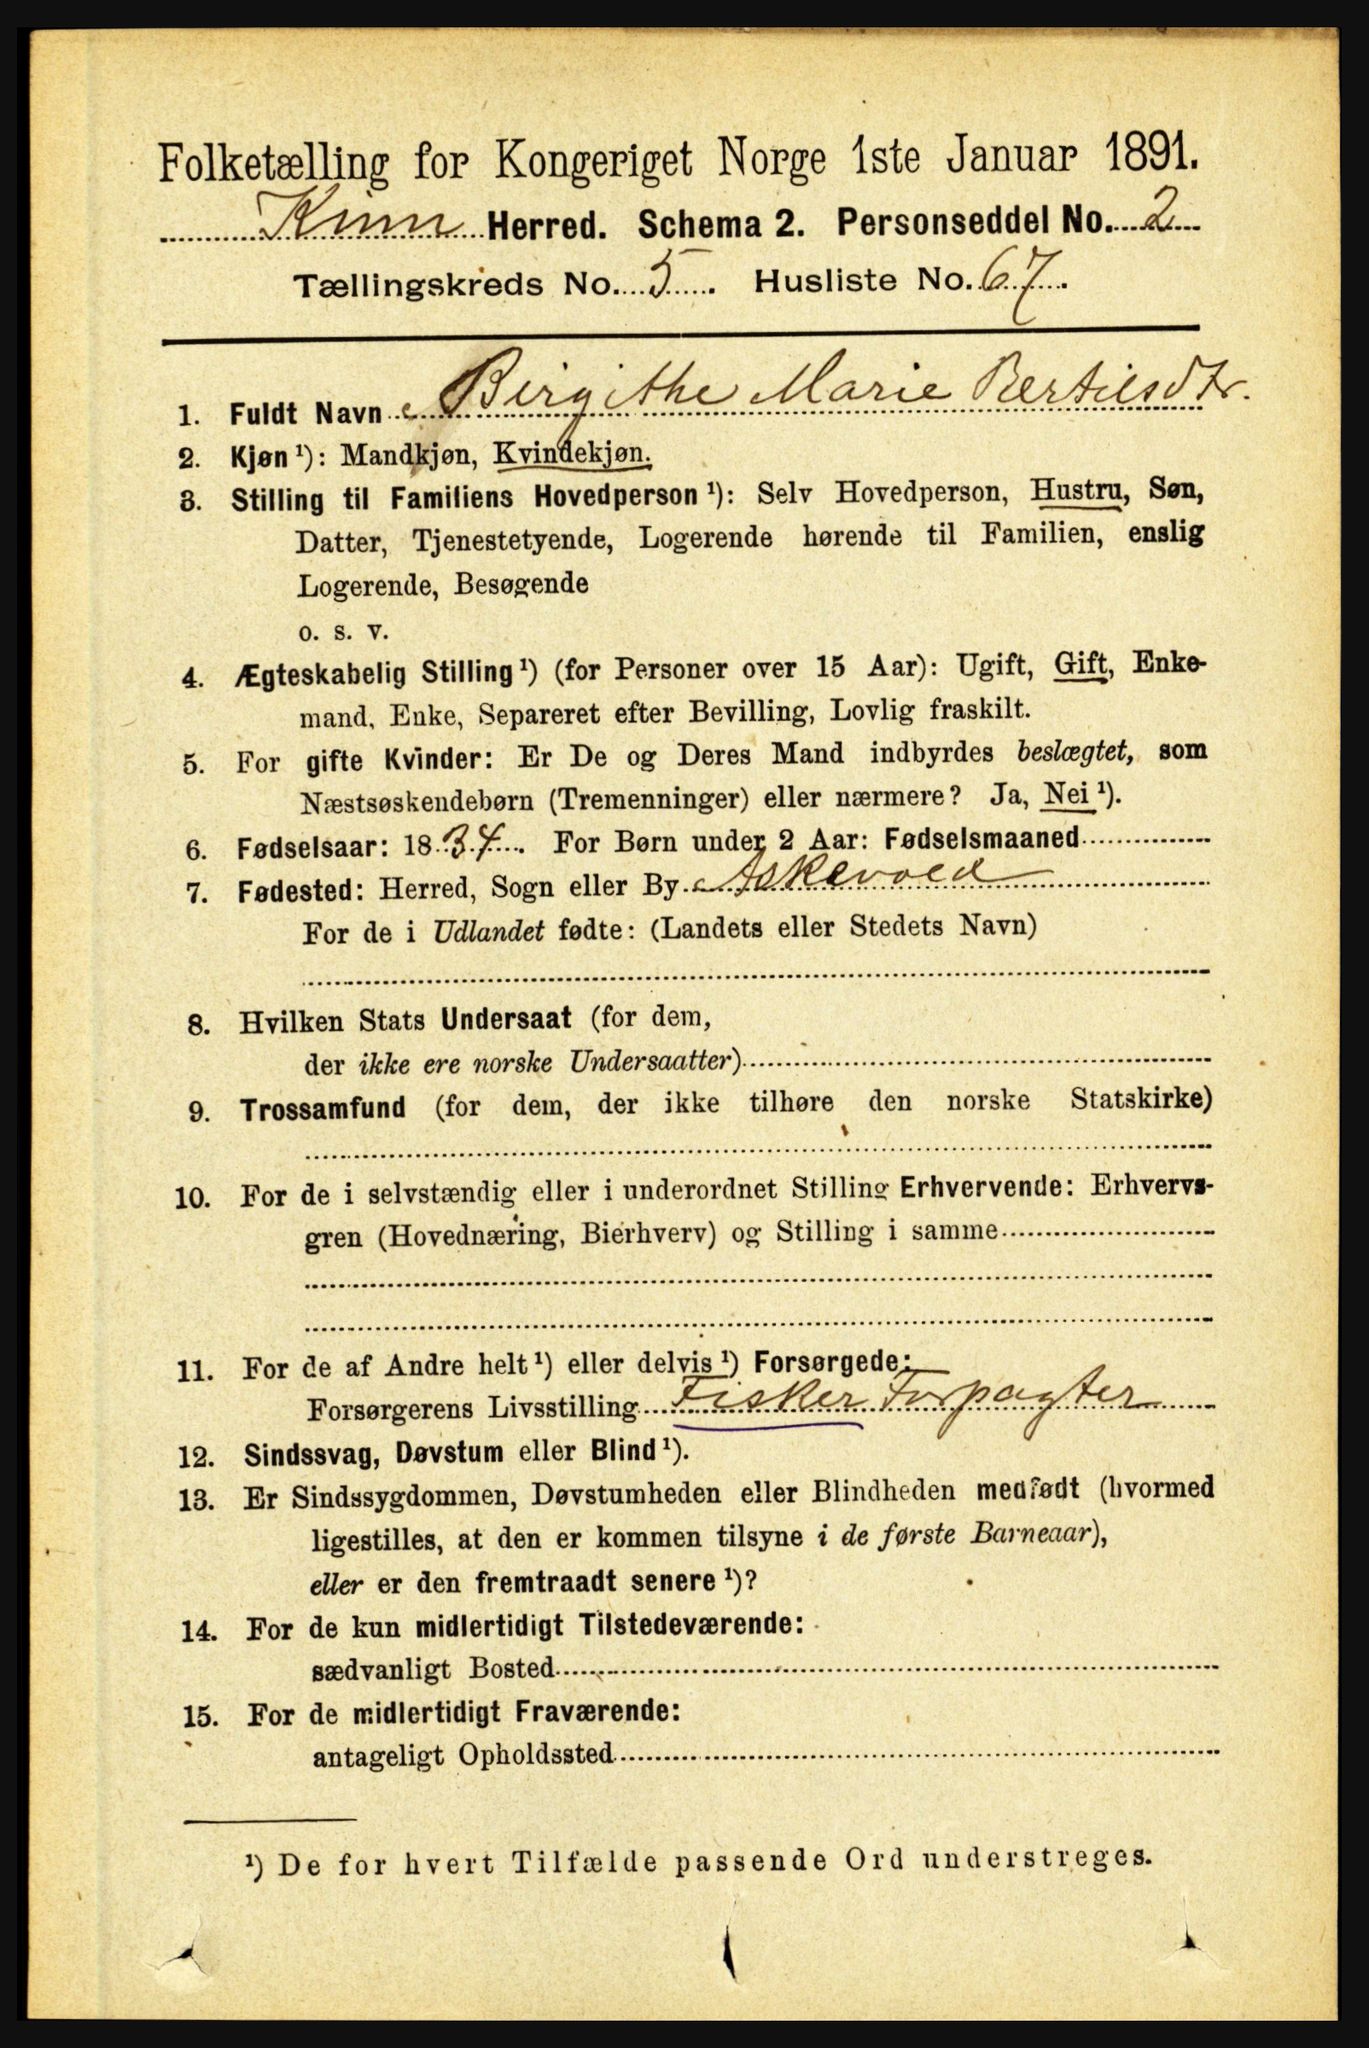 Folketælling for Kongeriget Norge 1ste Januar 1891.
Kinn Herred. Schema 2. Personseddel No. 2
Tællingskreds No. 5. Husliste No. 67.
1. Fuldt Navn Birgithe Marie Bertilsdtr.
2. Kjøn ¹): Mandkjøn, Kvindekjøn.
3. Stilling til Familiens Hovedperson ¹): Selv Hovedperson, Hustru, Søn,
Datter, Tjenestetyende, Logerende hørende til Familien, enslig
Logerende, Besøgende
o. s. v.
4. Ægteskabelig Stilling ¹) (for Personer over 15 Aar): Ugift, Gift, Enke-
mand, Enke, Separeret efter Bevilling, Lovlig fraskilt.
5. For gifte Kvinder: Er De og Deres Mand indbyrdes beslægtet, som
Næstsøskendebørn (Tremenninger) eller nærmere? Ja, Nei ¹).
6. Fødselsaar: 1834. For Børn under 2 Aar: Fødselsmaaned
7. Fødested: Herred, Sogn eller By Askevold
For de i Udlandet fødte: (Landets eller Stedets Navn)
8. Hvilken Stats Undersaat (for dem,
der ikke ere norske Undersaatter)
9. Trossamfund (for dem, der ikke tilhøre den norske Statskirke)
10. For de i selvstændig eller i underordnet Stilling Erhvervende: Erhvervs-
gren (Hovednæring, Bierhverv) og Stilling i samme
11. For de af Andre helt ¹) eller delvis ¹) Forsørgede:
Forsørgerens Livsstilling Fisker Forpagter
12. Sindssvag, Døvstum eller Blind ¹).
13. Er Sindssygdommen, Døvstumheden eller Blindheden medfødt (hvormed
ligestilles, at den er kommen tilsyne i de første Barneaar),
eller er den fremtraadt senere ¹)?
14. For de kun midlertidigt Tilstedeværende:
sædvanligt Bosted
15. For de midlertidigt Fraværende:
antageligt Opholdssted
¹) De for hvert Tilfælde passende Ord understreges.